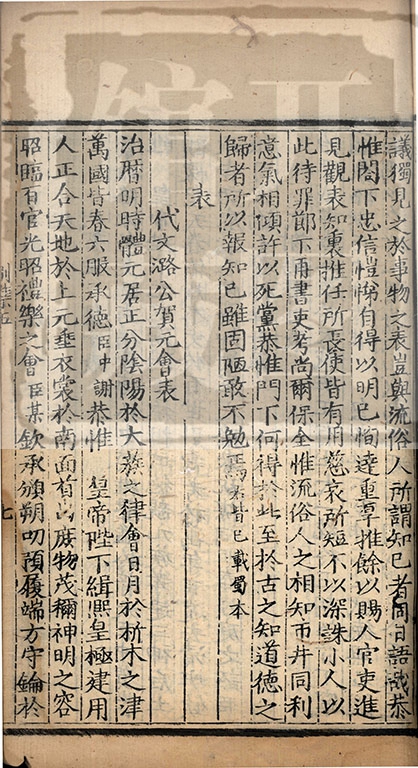 議獨見之於事物之表豈與流俗人所謂知已者同日語哉恭
惟閤下忠信愷悌自得以明已恂達重羣推餘以賜人官吏進
見觀表知裏推任所長使皆有用慈哀所短不以深誅小人以
此待罪節下再書吏考尚爾保全惟流俗人之相知市井同利
意氣相傾許以死黨恭惟門下何得於此至於古之知道德之
歸者所以報知已雖固陋敢不勉焉 皆已載蜀本
表
代文潞公賀元會表
治曆明時體元居正分陰陽於大蔟之律會日月於析木之津
萬國皆春六服承德臣中謝恭惟 皇帝陛下緝熙皇極建用
人正合天地於上元垂衣裳於南面首出庶物茂穪神明之容
昭臨百官光昭禮樂之會臣某欽承頒朔叨預履端方守鑰於
別集五
七